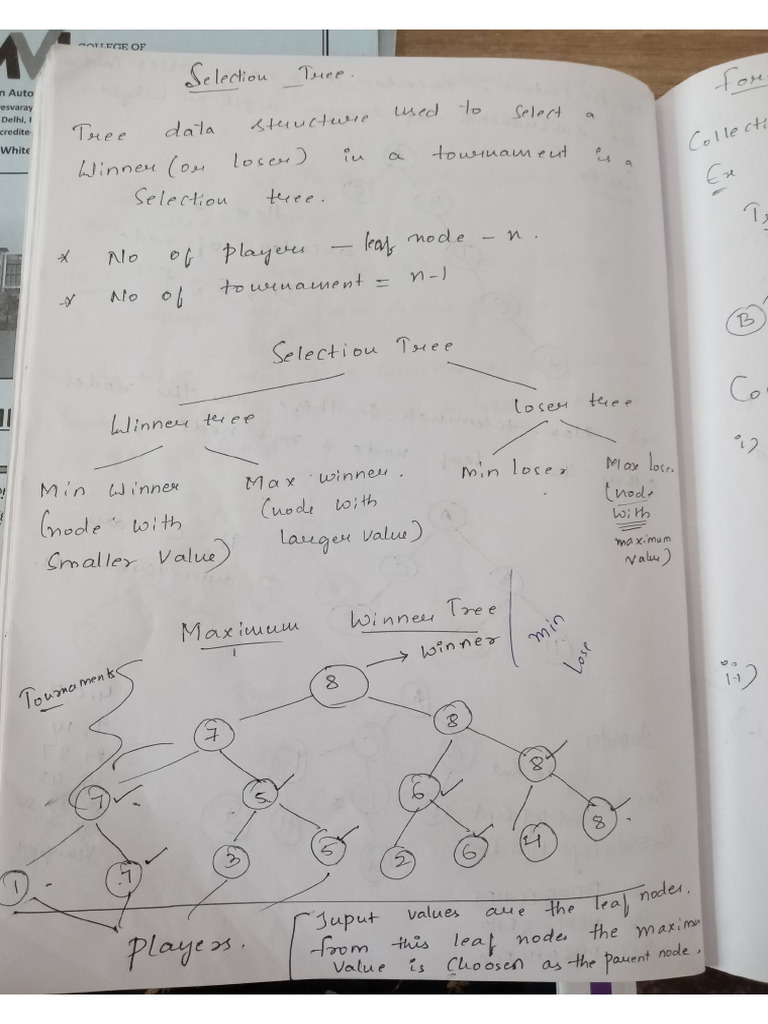 COLLEGE OF
n Auto
esvaray
Delhi, I
credite
White
Selection Tree.
Tree data structure used to select a
Winner (or loser) in a tournament is a
Selection tree.
* No of players - leaf node - n.
* No of tournament = n-1
Selection Tree
Winner tree
Loser tree
Min Winner
(node with
Smaller Value)
Max winner.
(node with
Larger value)
Min loser
Max lose.
(node
with
maximum
value)
Maximum Winner Tree
Min
Lose
→ Winner
Tournaments
8
7 8
7 5 6 8
1 7 3 5 2 6 4 8
Players.
Input values are the leaf nodes.
from this leaf nodes the maximu
Value is Choosen as the parent node.
For
Collecti
Ex
B
Co
i)
ii)